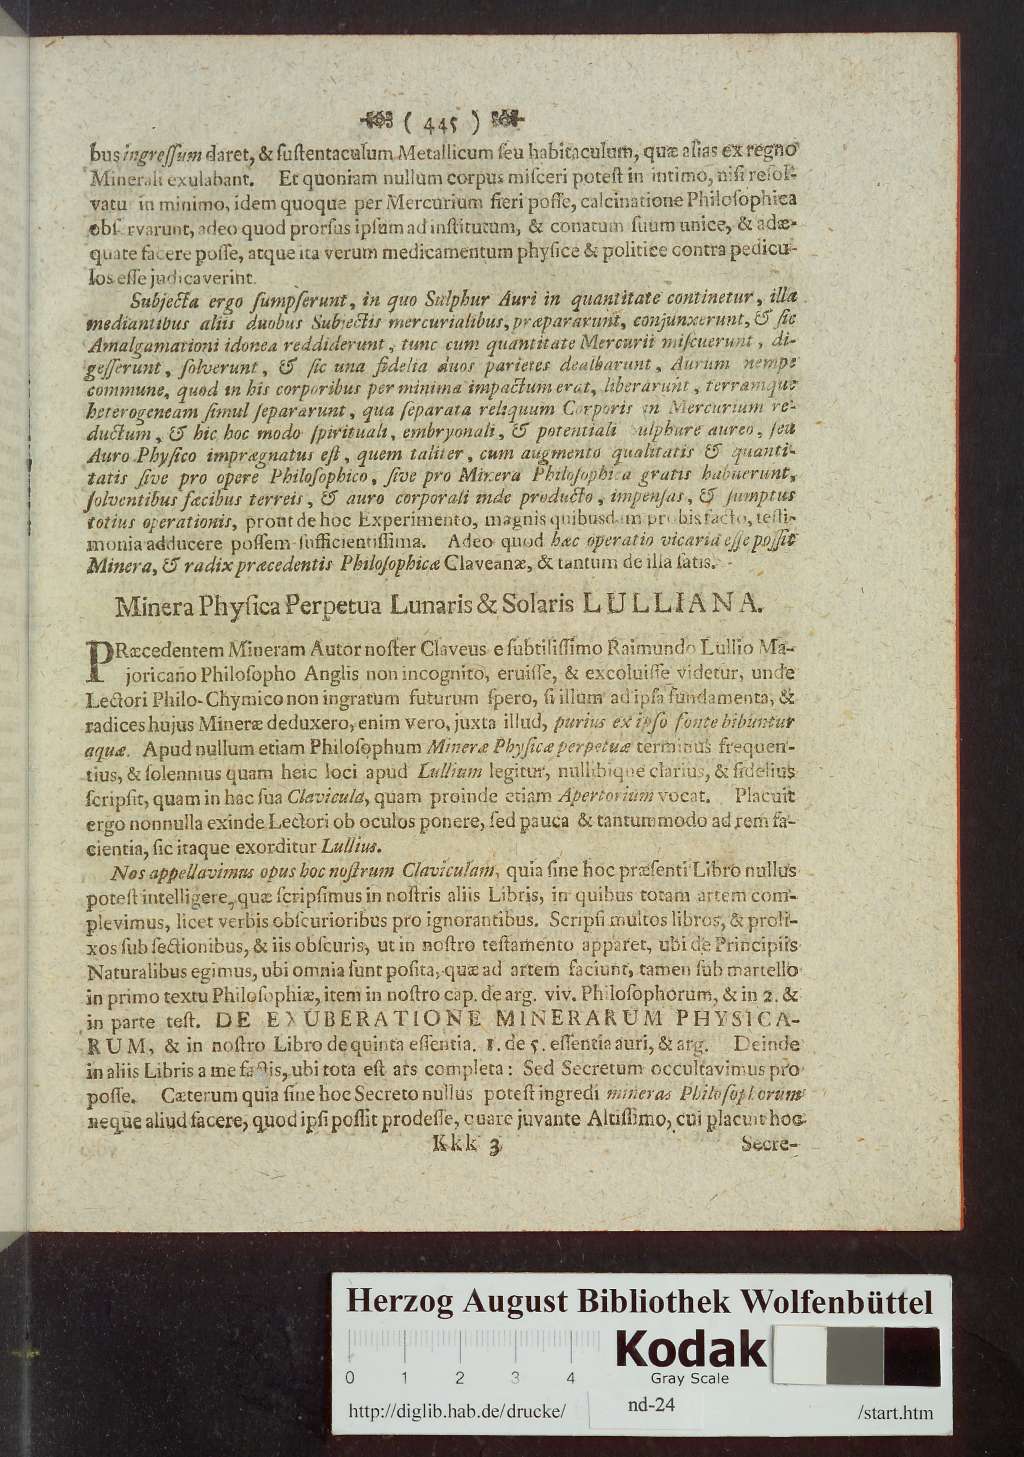 ( 445 )
bus ingreſſum daret, & ſuſtentaculum Metallicum ſeu habitaculum, quæ alias ex regno
Minerali exulabant. Et quoniam nullum corpus miſceri poteſt in intimo, niſi reſol-
vatur in minimo, idem quoque per Mercurium fieri poſſe, calcinatione Philoſophica
obſervarunt, adeo quod prorſus ipſum ad inſtitutum, & conatum ſuum unice, & adæ-
quate facere poſſe, atque ita verum medicamentum phyſice & politice contra pedicu-
los eſſe judicaverint.
Subjecta ergo ſumpſerunt, in quo Sulphur Auri in quantitate continetur, illa
mediantibus aliis duobus Subjectis mercurialibus, præpararunt, conjunxerunt, & ſic
Amalgamationi idonea reddiderunt, tunc cum quantitate Mercurii miſcuerunt, di-
geſſerunt, ſolverunt, & ſic una fidelia duos parietes dealbarunt, Aurum nempe
commune, quod in his corporibus per minima impactum erat, liberarunt, terramque
heterogeneam ſimul ſepararunt, qua ſeparata reliquum Corporis in Mercurium re-
ductum, & hic hoc modo ſpirituali, embryonali, & potentiali Sulphure aureo, ſeu
Auro Phyſico imprægnatus eſt, quem taliter, cum augmento qualitatis & quanti-
tatis ſive pro opere Philoſophico, ſive pro Minera Philoſophica gratis habuerunt,
ſolventibus fæcibus terreis, & auro corporali inde producto, impenſas, & ſumptus
totius operationis, prout de hoc Experimento, magnis quibusdam probis facto, teſti-
monia adducere poſſem ſufficientiſſima. Adeo quod hæc operatio vicaria eſſe poſſit
Minera, & radix præcedentis Philoſophicæ Claveanæ, & tantum de illa ſatis.
Minera Phyſica Perpetua Lunaris & Solaris LULLIANA.
PRæcedentem Mineram Autor noſter Claveus e ſubtiliſſimo Raimundo Lullio Ma-
joricano Philoſopho Anglis non incognito, eruiſſe, & excoluiſſe videtur, unde
Lectori Philo-Chymico non ingratum futurum ſpero, ſi illum ad ipſa fundamenta, &
radices hujus Mineræ deduxero, enim vero, juxta illud, purius ex ipſo fonte bibuntur
aquæ. Apud nullum etiam Philoſophum Mineræ Phyſicæ perpetuæ terminus frequen-
tius, & ſolennius quam heic loci apud Lullium legitur, nullibique clarius, & fidelius
ſcripſit, quam in hac ſua Clavicula, quam proinde etiam Apertorium vocat. Placuit
ergo nonnulla exinde Lectori ob oculos ponere, ſed pauca & tantummodo ad rem fa-
cientia, ſic itaque exorditur Lullius.
Nos appellavimus opus hoc noſtrum Claviculam, quia ſine hoc præſenti Libro nullus
poteſt intelligere, quæ ſcripſimus in noſtris aliis Libris, in quibus totam artem com-
plevimus, licet verbis obſcurioribus pro ignorantibus. Scripſi multos libros, & proli-
xos ſub ſectionibus, & iis obſcuris, ut in noſtro teſtamento apparet, ubi de Principiis
Naturalibus egimus, ubi omnia ſunt poſita, quæ ad artem faciunt, tamen ſub martello
in primo textu Philoſophiæ, item in noſtro cap. de arg. viv. Philoſophorum, & in 2. &
in parte teſt. DE EXUBERATIONE MINERARUM PHYSICA-
RUM, & in noſtro Libro de quinta eſſentia. 1. de 5. eſſentia auri, & arg. Deinde
in aliis Libris a me factis, ubi tota eſt ars completa: Sed Secretum occultavimus pro
poſſe. Cæterum quia ſine hoc Secreto nullus poteſt ingredi mineras Philoſophorum
neque aliud facere, quod ipſi poſſit prodeſſe, quare juvante Altiſſimo, cui placuit hoc
Kkk 3 Secre-
Herzog August Bibliothek Wolfenbüttel
0 1 2 3 4
Kodak
Gray Scale
http://diglib.hab.de/drucke/ nd-24 /start.htm